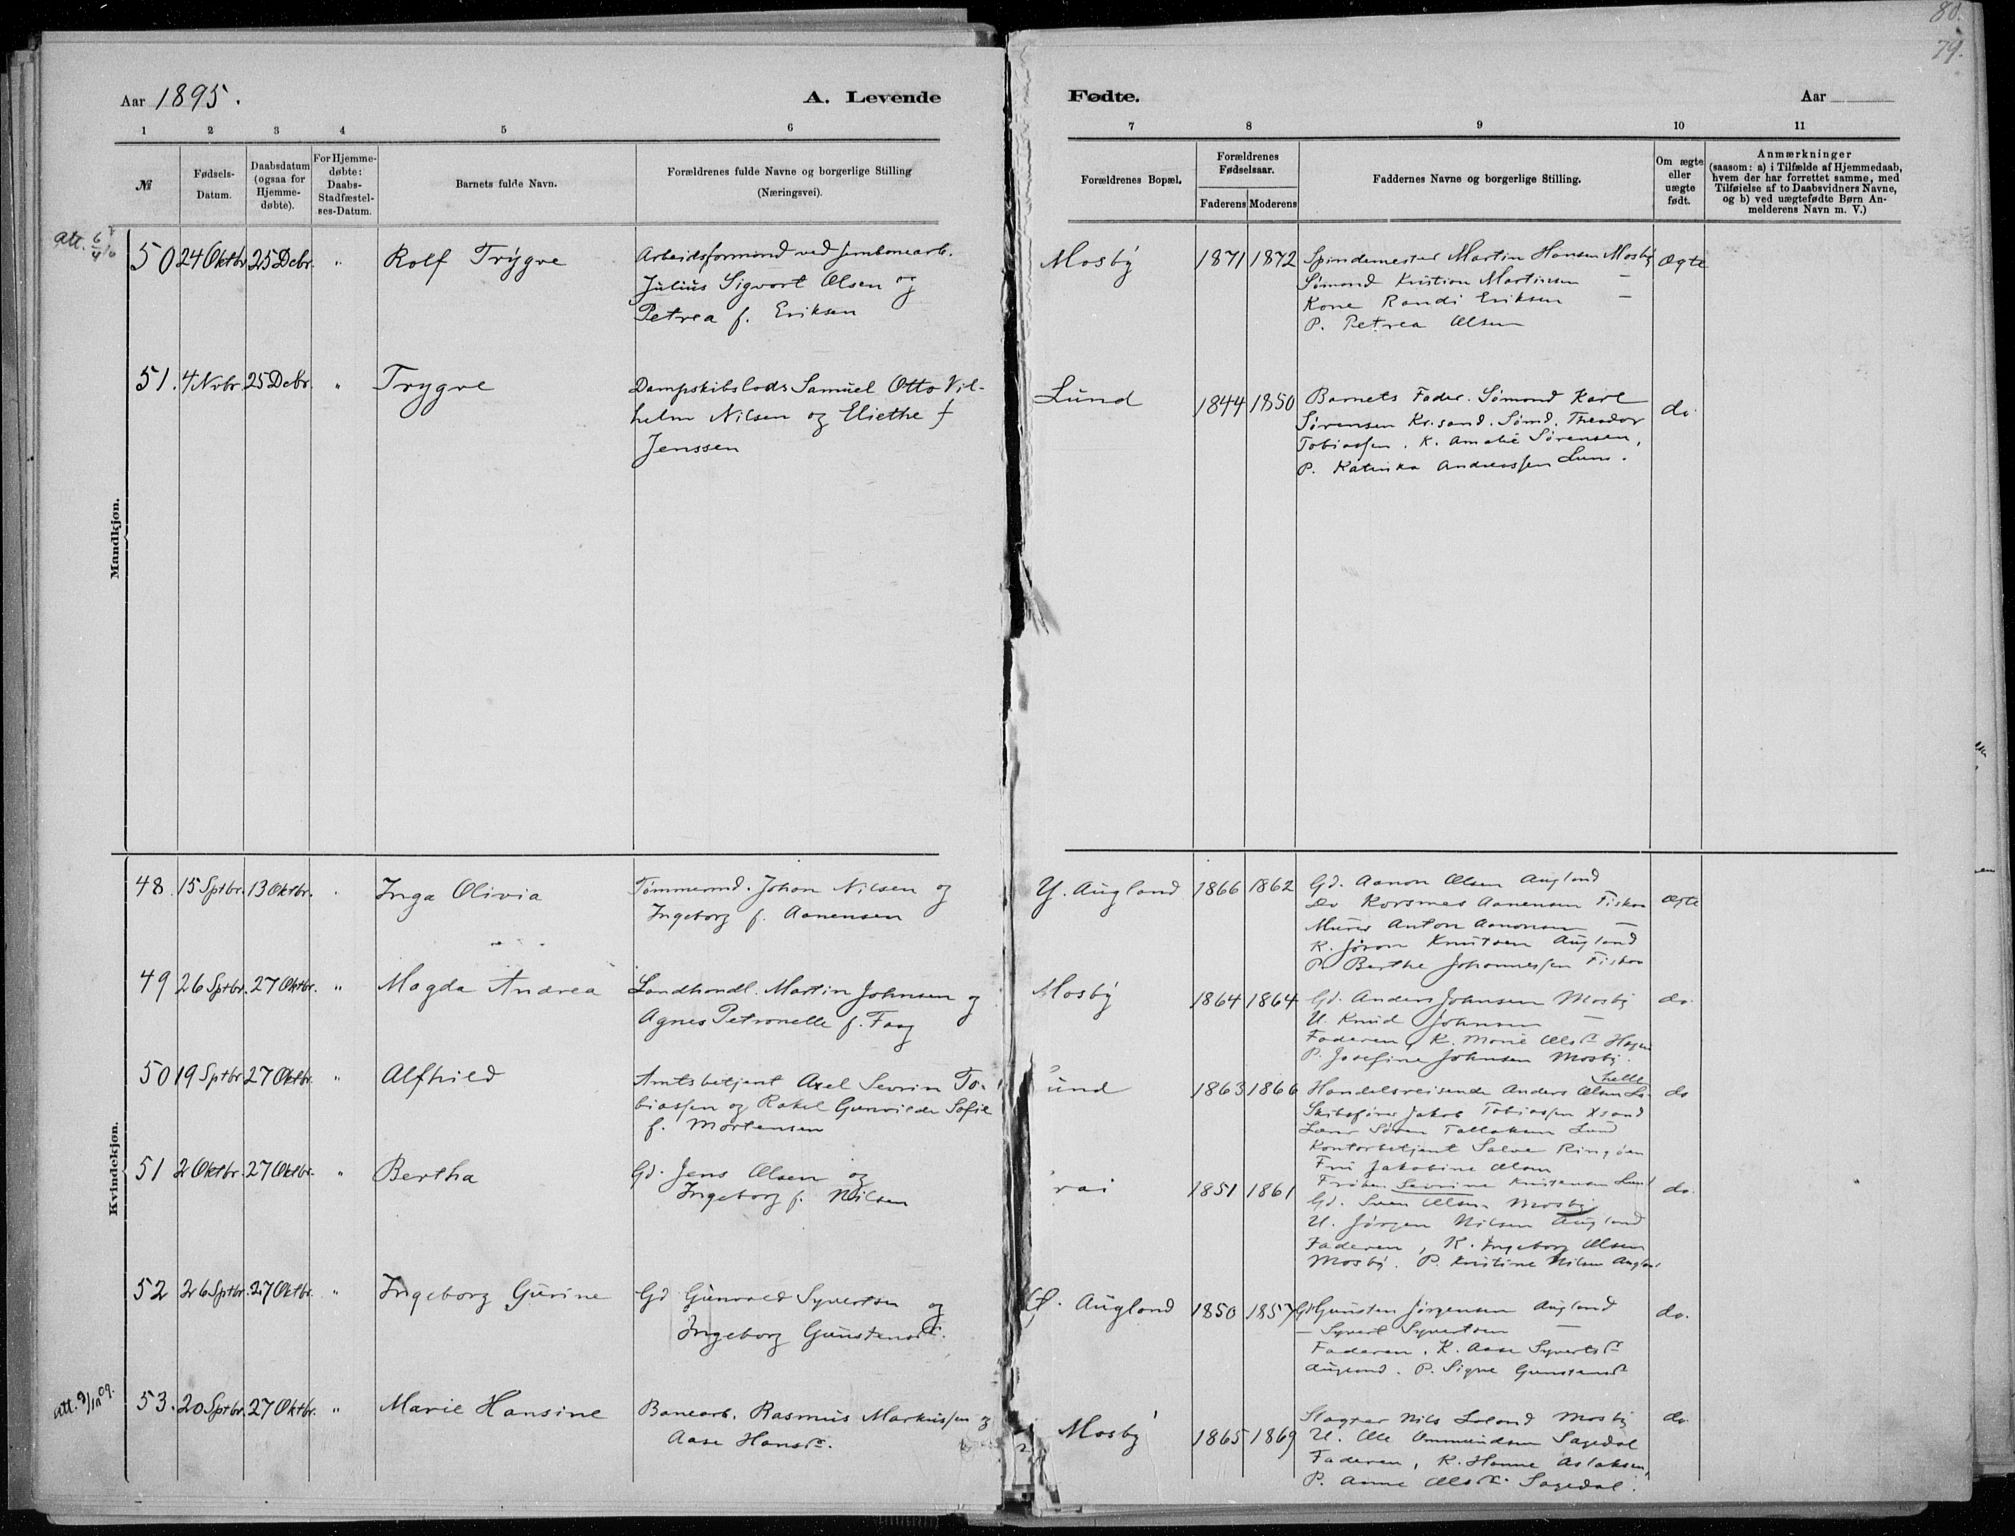 80.
79.
Aar 1895.
A. Levende
Fødte.
Aar
1 2 3 4 5 6 7 8 9 10 11
№
Fødsels-
Datum.
Daabsdatum
(ogsaa for
Hjemme-
døbte).
For Hjemme-
døbte:
Daabs-
Stadfæstel-
ses-Datum.
Barnets fulde Navn.
Forældrenes fulde Navne og borgerlige Stilling
(Næringsvei).
Forældrenes Bopæl.
Forældrenes
Fødselsaar.
Faderens Moderens
Faddernes Navne og borgerlige Stilling.
Om ægte
eller
uægte
født.
Anmærkninger
(saasom: a) i Tilfælde af Hjemmedaab,
hvem der har forrettet samme, med
Tilføielse af to Daabsvidners Navne,
og b) ved uægtefødte Børn An-
melderens Navn m. V.)
Mandkjøn.
att.
50 24 Oktbr. 25 Debr. " Rolf Trygve
Arbeidsformand ved Jernbanearb.
Julius Sigvart Olsen og
Petrea f. Eriksen
Mosby 1871 1872
Spindemester Martin Hansen Mosby
Sømand Kristian Martinsen —
Kone Randi Eriksen —
P. Petrea Olsen
Ægte
51. 4 Nvbr. 25 Debr. " Trygve
Dampskibslods Samuel Otto Vil-
helm Nilsen og Eliethe f
Jenssen
Lund 1844 1850
Barnets Fader. Sømand Karl
Sørensen Kr.sand. Sømd. Theodor
Tobiassen. K. Amalie Sørensen,
P. Katinka Andreassen Lund.
do.
Kvindekjøn.
48. 15 Sptbr. 13 Oktbr. " Inga Olivia
Tømmermd. Johan Nilsen og
Ingeborg f. Aanensen
Y. Augland 1866 1862
Gd. Aanon Olsen Augland
Do Korsmes Aanensen Fiskaa
Murer Anton Aanonsen —
K. Jøran Knutsen Augland
P. Berthe Johannessen Fiskaa
Ægte
49 26 Sptbr. 27 Oktbr. " Magda Andrea
Landhandl. Martin Johnsen og
Agnes Petronelle f. Faag
Mosby 1864 1864
Gd. Anders Johnsen Mosby
U. Knud Johnsen —
Faderen, K. Marie Olsdr Hagen
P. Josefine Johnsen Mosby.
do.
50 19 Sptbr. 27 Oktbr. " Alfhild
Amtsbetjent Axel Sevrin To-
biassen og Rakel Gunvilde Sofie
f. Mortensen
und 1863 1866
Handelsreisende Anders Olsen
Skibsfører Jakob Tobiassen Xsand
Lærer Søren Tallaksen Lund
Kontorbetjent Salve Ringøen
Fru Jakobine Olsen
Frøken Sevrine Knutsen Lund
do
51 2 Oktbr. 27 Oktbr. " Bertha
Gd. Jens Olsen og
Ingeborg f. Nilsen
rai 1851 1861
Gd. Sven Olsen Mosby
U. Jørgen Nilsen Augland
Faderen, K. Ingeborg Olsen
Mosby. P. Kristine Nilsen Augland
do.
52 26 Sptbr. 27 Oktbr. " Ingeborg Gurine
Gd Gunvald Syvertsen og
Ingeborg Gunstensdr.
Ø. Augland 1850 1857
Gd Gunsten Jørgensen Augland
— Syvert Syvertsen —
Faderen, K. Aase Syvertsdr
Augland. P. Signe Gunstensdr
do.
att. 9/10 09.
53. 20 Sptbr. 27 Oktbr. " Marie Hansine
Banearb. Rasmus Markussen og
Aase Hansdr.
Mosby 1865 1869
Slagter Nils Loland Mosby
U. Ole Ommundsen Sagedal
Faderen, K. Hanne Aslaksen,
P. Anne Olsdr Sagedal.
do.